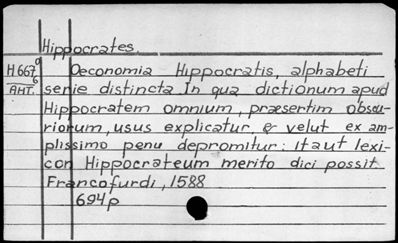 Hippocrates.
H667o Oeconomia Hippocratis, alphabeti
AHT. serie distincta In qua dictionum apud
Hippocratem omnium, præsertim obscu-
riorum, usus explicatur, & velut ex am-
plissimo penu depromitur: ita ut lexi-
con Hippocrateum merito dici possit
Francofurdi, 1588
694p